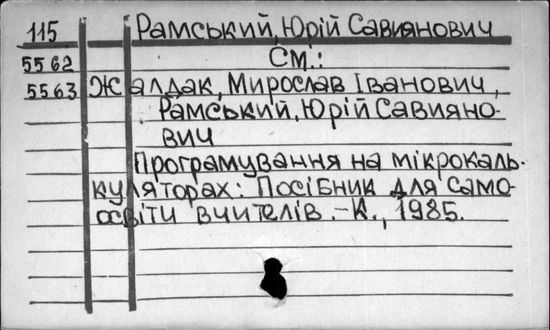 115 Рамський, Юрій Савиянович
5562 См.:
5563 Жалдак, Мирослав Іванович,
Рамський, Юрій Савияно-
вич
Програмування на мікрокаль-
куляторах: Посібник для само-
освіти вчителів.-К., 1985.